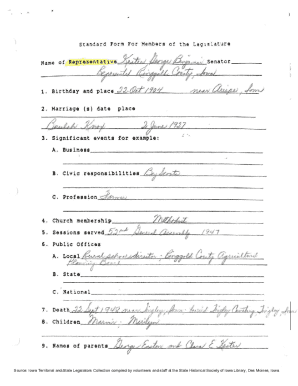 Standard Form For Members of the Legislature
Name of Representative George Senator
Represented Ringgold County, Iowa
1. Birthday and place 22 Oct 1904 near Iowa
2. Marriage (s) date place
Beulah Knox 2 June 1927
3. Significant events for example:
A. Business
B. Civic responsibilities Boy Scouts
C. Profession Farmer
4. Church membership Methodist
5. Sessions served 52nd General Assembly 1947
6. Public Offices
A. Local Ringgold County Agricultural
Planning Board
B. State
C. National
7. Death 22 Sept near Tingley, Iowa buried Tingley Cemetery Tingley, Iowa
8. Children Marilyn
9. Names of parents George and
Source: Iowa Territorial and State Legislators Collection compiled by volunteers and staff at the State Historical Society of Iowa Library, Des Moines, Iowa.